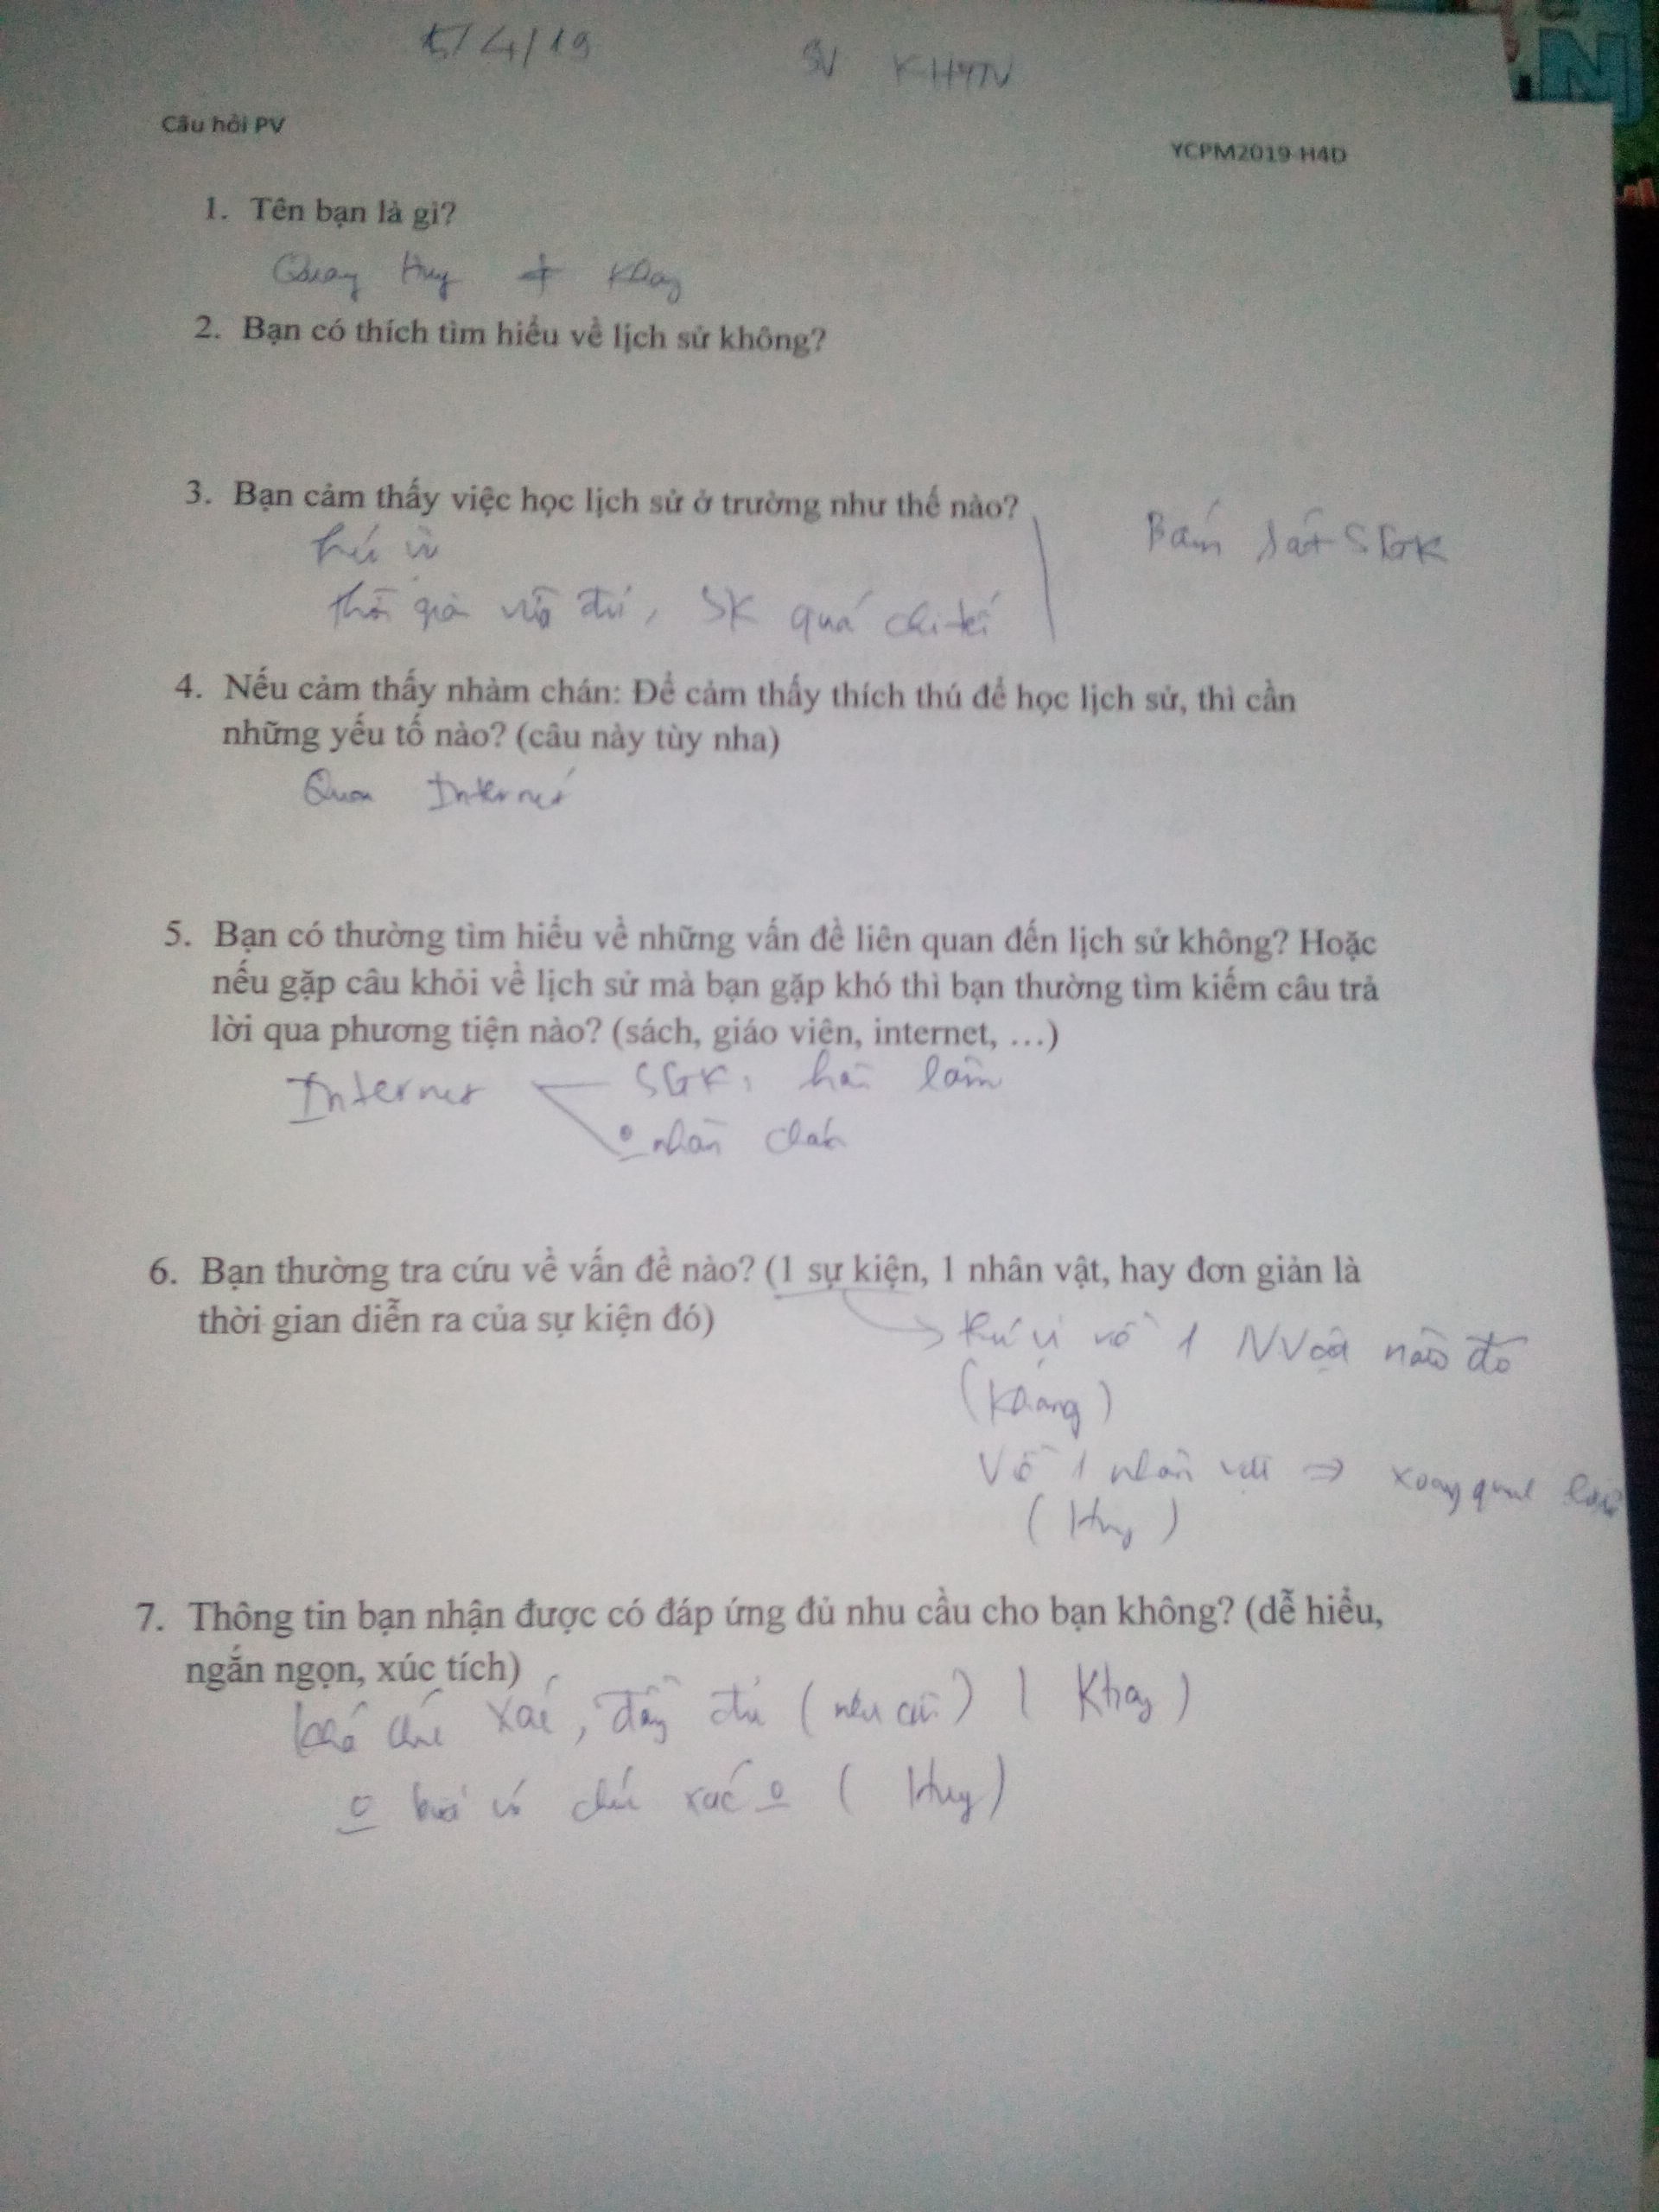 5/4/19 SV KHTN
Câu hỏi PV
YCPM2019-H4D
1. Tên bạn là gì?
Quang Huy + Khang
2. Bạn có thích tìm hiểu về lịch sử không?
3. Bạn cảm thấy việc học lịch sử ở trường như thế nào?
thú vị
Bám sát SGK
SK quá chi tiết
4. Nếu cảm thấy nhàm chán: Để cảm thấy thích thú để học lịch sử, thì cần
những yếu tố nào? (câu này tùy nha)
Qua Internet
5. Bạn có thường tìm hiểu về những vấn đề liên quan đến lịch sử không? Hoặc
nếu gặp câu khỏi về lịch sử mà bạn gặp khó thì bạn thường tìm kiếm câu trả
lời qua phương tiện nào? (sách, giáo viên, internet, …)
Internet SGK, hàn lâm
nhàm chán
6. Bạn thường tra cứu về vấn đề nào? (1 sự kiện, 1 nhân vật, hay đơn giản là
thời gian diễn ra của sự kiện đó)
thú vị về 1 NVật nào đó
(Khang)
Về 1 nhân vật ⇒ xoay quanh
(Huy)
7. Thông tin bạn nhận được có đáp ứng đủ nhu cầu cho bạn không? (dễ hiểu,
ngắn ngọn, xúc tích)
khá chính xác, đầy đủ (nhu cầu) (Khang)
chính xác (Huy)